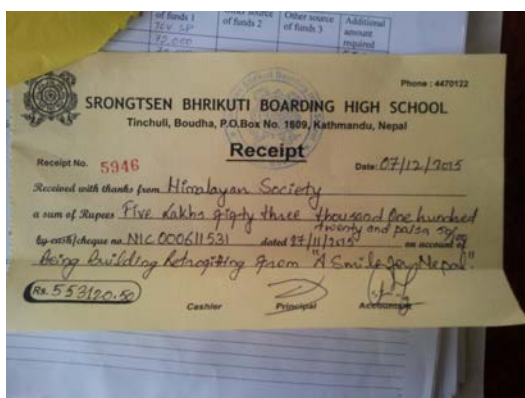 of funds 1
of funds 2
Other source
of funds 3
Additional
amount
required
72,000
Phone : 4470122
SRONGTSEN BHRIKUTI BOARDING HIGH SCHOOL
Tinchuli, Boudha, P.O.Box No. 1609, Kathmandu, Nepal
Receipt
Receipt No. 5946
Date: 07/12/2015
Received with thanks from Himalayan Society
a sum of Rupees Five Lakhs fifty three thousand One hundred
twenty and paisa 50/00
by cash/cheque no. NIC 000611531 dated 27/11/2015 on account of
Being Building Retrofitting from "A Smile for Nepal".
Rs. 553120.50
Cashier
Principal
Accountant